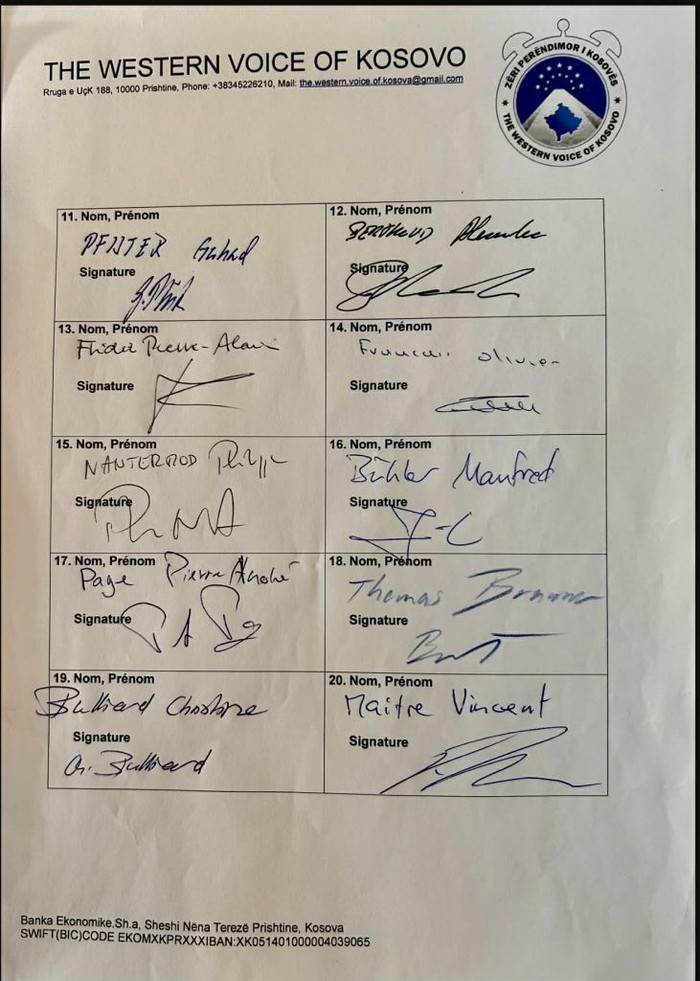 THE WESTERN VOICE OF KOSOVO
Rruga e UçK 188, 10000 Prishtine, Phone: +38345226210, Mail: the.western.voice.of.kosova@gmail.com
ZËRI PERËNDIMOR I KOSOVËS
THE WESTERN VOICE OF KOSOVO
11. Nom, Prénom
PFISTER Gerhard
Signature
12. Nom, Prénom
Signature
13. Nom, Prénom
Fridez Pierre-Alain
Signature
14. Nom, Prénom
Français Olivier
Signature
15. Nom, Prénom
NANTERMOD Philippe
Signature
16. Nom, Prénom
Bühler Manfred
Signature
17. Nom, Prénom
Page Pierre-André
Signature
18. Nom, Prénom
Thomas
Signature
19. Nom, Prénom
Bulliard Christine
Signature
C. Bulliard
20. Nom, Prénom
Maitre Vincent
Signature
Banka Ekonomike.Sh.a, Sheshi Nëna Terezë Prishtine, Kosova
SWIFT(BIC)CODE EKOMXKPRXXXIBAN:XK051401000004039065